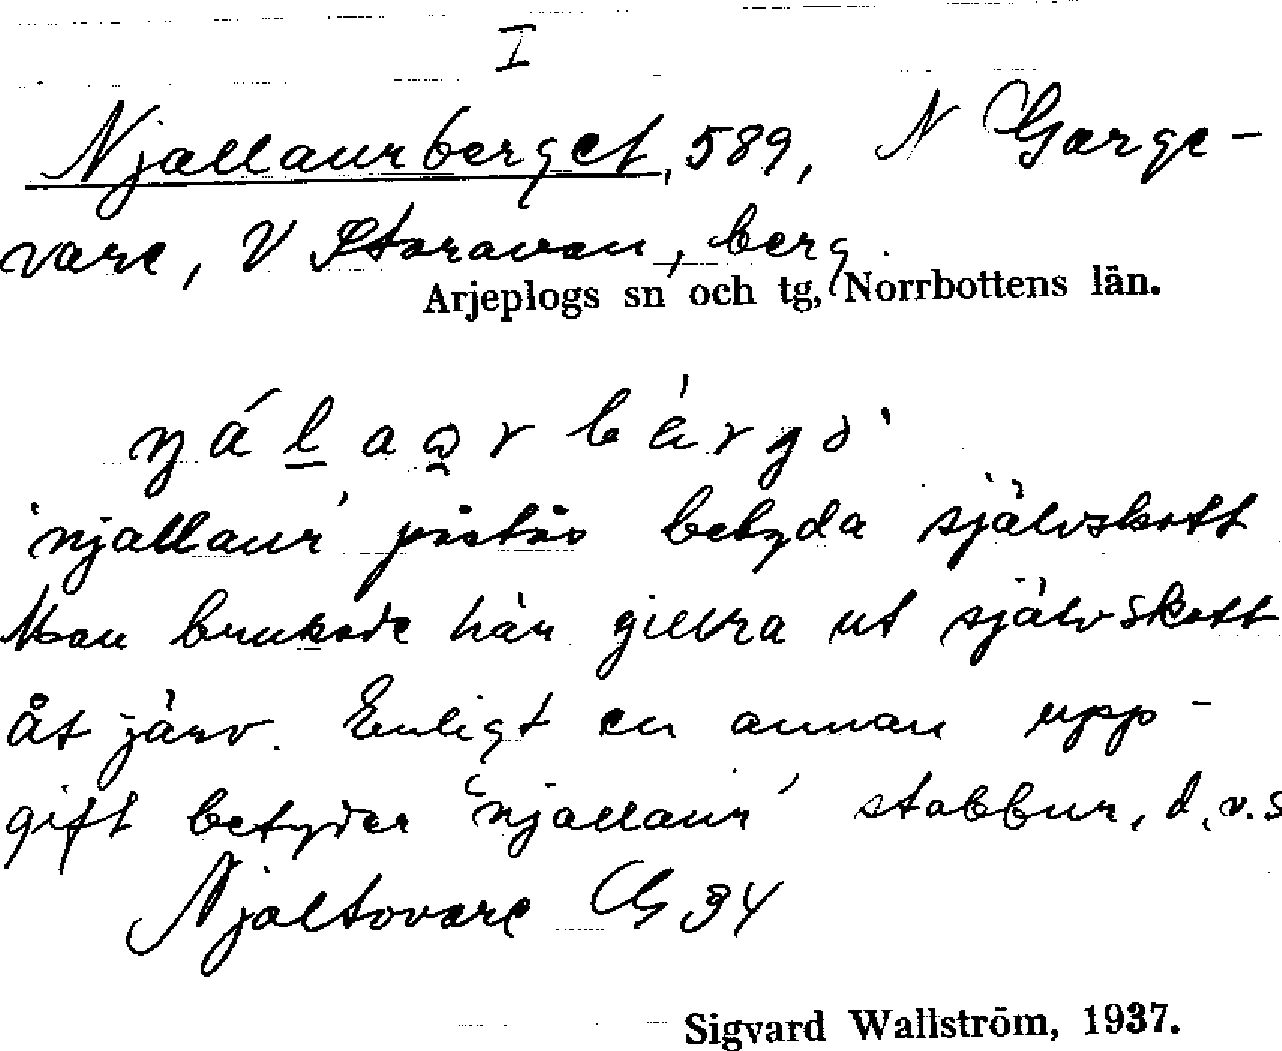 I
Njallaurberget, 589, N Garge-
vare, V Storavan, berg.
Arjeplogs sn och tg, Norrbottens län.
'njallaur' påstås betyda självskott
Man brukade här gillra ut självskott
åt järv. Enligt en annan upp-
gift betyder 'njallaur' stabbur, d.v.s
Njaltovare G 34
Sigvard Wallström, 1937.